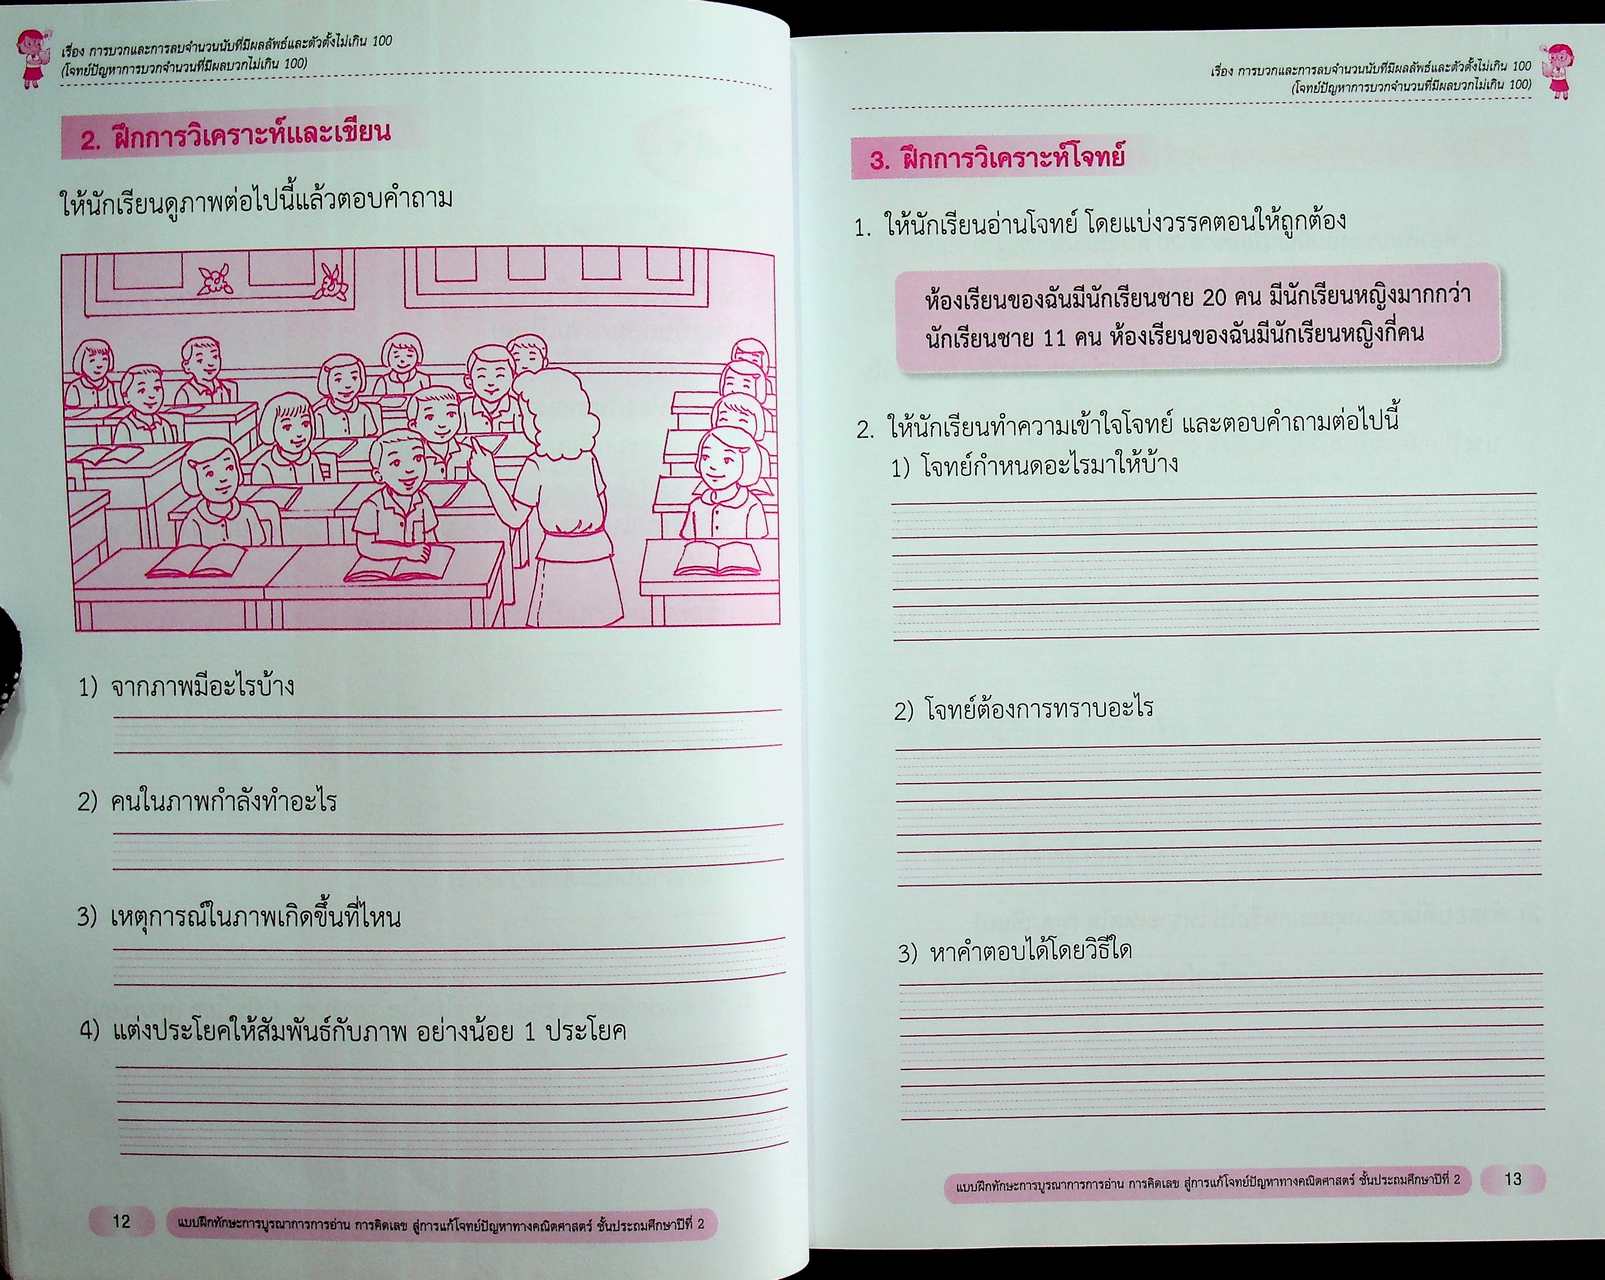 เรื่อง การบวกและการลบจำนวนนับที่มีผลลัพธ์และตัวตั้งไม่เกิน 100
(โจทย์ปัญหาการบวกจำนวนที่มีผลบวกไม่เกิน 100)
2. ฝึกการวิเคราะห์และเขียน
ให้นักเรียนดูภาพต่อไปนี้แล้วตอบคำถาม
1) จากภาพมีอะไรบ้าง
2) คนในภาพกำลังทำอะไร
3) เหตุการณ์ในภาพเกิดขึ้นที่ไหน
4) แต่งประโยคให้สัมพันธ์กับภาพ อย่างน้อย 1 ประโยค
12 แบบฝึกทักษะการบูรณาการการอ่าน การคิดเลข สู่การแก้โจทย์ปัญหาทางคณิตศาสตร์ ชั้นประถมศึกษาปีที่ 2
เรื่อง การบวกและการลบจำนวนนับที่มีผลลัพธ์และตัวตั้งไม่เกิน 100
(โจทย์ปัญหาการบวกจำนวนที่มีผลบวกไม่เกิน 100)
3. ฝึกการวิเคราะห์โจทย์
1. ให้นักเรียนอ่านโจทย์ โดยแบ่งวรรคตอนให้ถูกต้อง
ห้องเรียนของฉันมีนักเรียนชาย 20 คน มีนักเรียนหญิงมากกว่า
นักเรียนชาย 11 คน ห้องเรียนของฉันมีนักเรียนหญิงกี่คน
2. ให้นักเรียนทำความเข้าใจโจทย์ และตอบคำถามต่อไปนี้
1) โจทย์กำหนดอะไรมาให้บ้าง
2) โจทย์ต้องการทราบอะไร
3) หาคำตอบได้โดยวิธีใด
แบบฝึกทักษะการบูรณาการการอ่าน การคิดเลข สู่การแก้โจทย์ปัญหาทางคณิตศาสตร์ ชั้นประถมศึกษาปีที่ 2 13